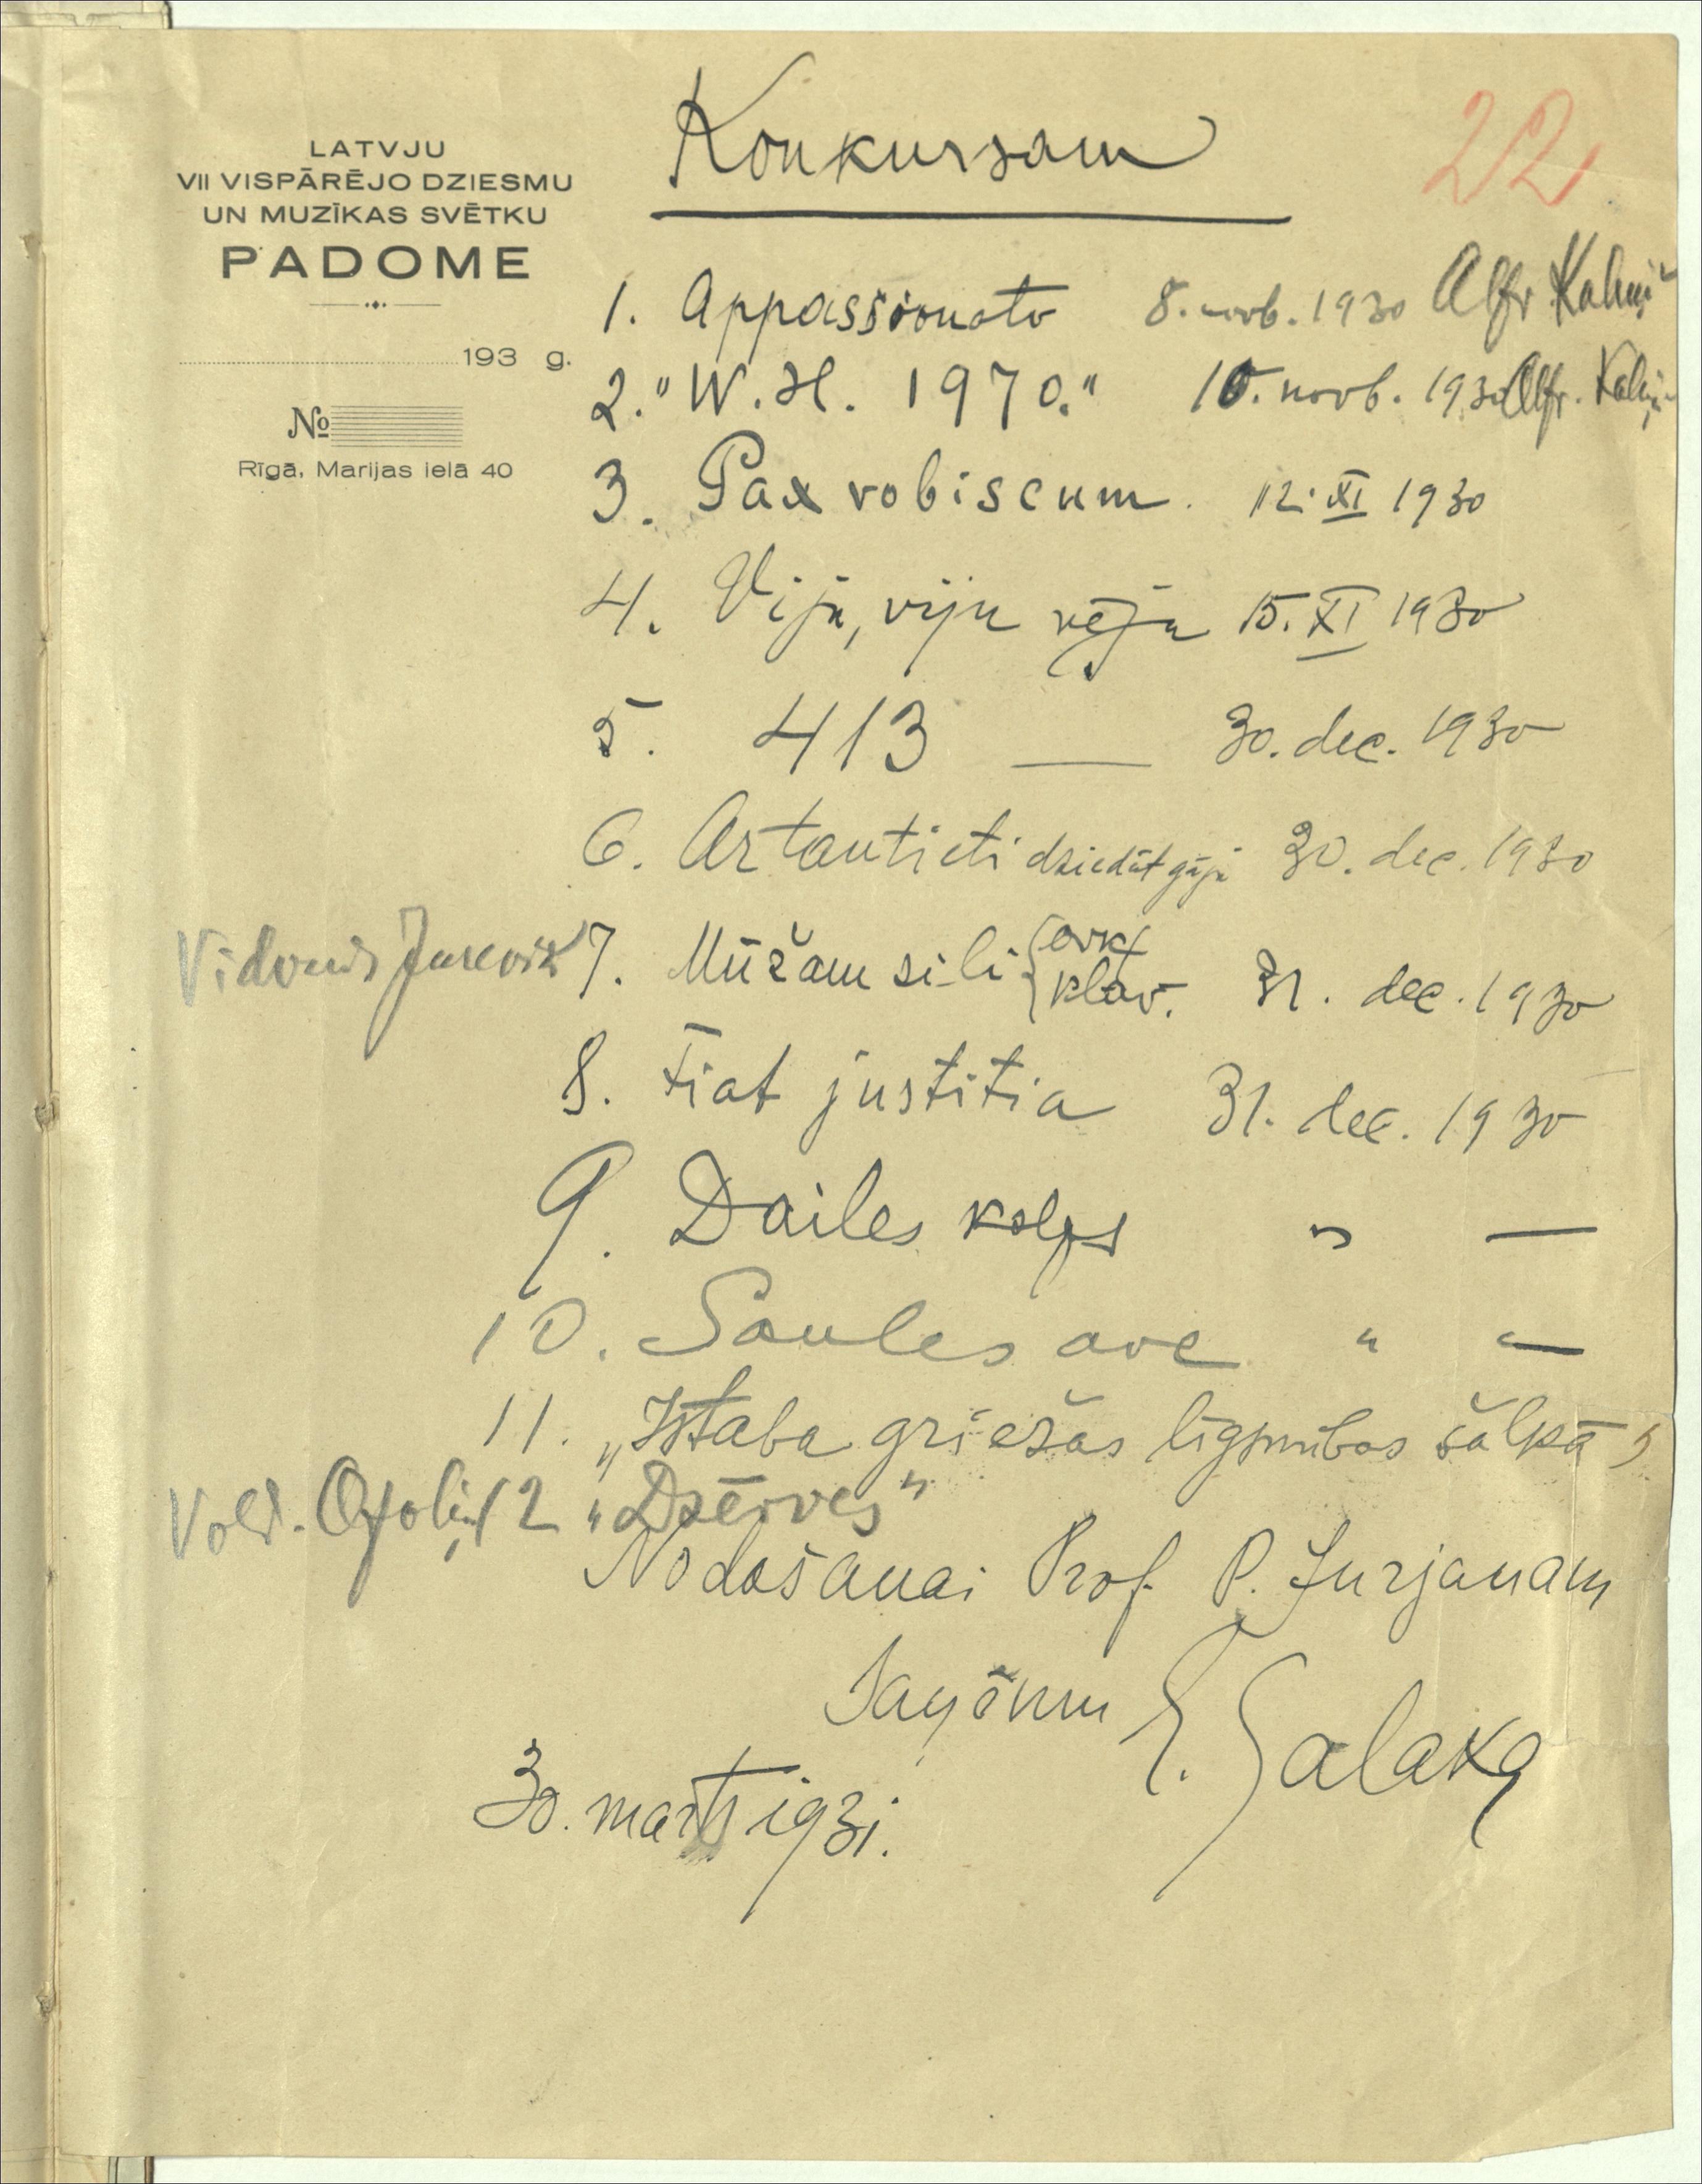 Konkursam
22
LATVJU
VII VISPĀRĒJO DZIESMU
UN MUZĪKAS SVĒTKU
PADOME
193 g.
№
Rīgā, Marijas ielā 40
1. Appassionato 8. novb. 1930 Alfr Kalniņ
2. "W. H. 1970." 10. novb. 1930 Alfr. Kalniņ
3. Pax vobiscum. 12. XI 1930
4. Viju, viju vēju 15. XI 1930
5. 413 — 30. dec. 1930
6. Ar tautieti dziedāt gāju 30. dec. 1930
Vidvuds Jurevič 7. Mūžam zili {ork / klav. 31. dec. 1930
8. Fiat justitia 31. dec. 1930
9. Dailes kalps " —
10. Saules ave " —
11. „Istaba griežas līgsmības šalkā"
Vold. Ozoliņ 12 „Dzērves"
Nodošanai Prof. P. Jurjanam
Saņēmu E. Salaka
30. marts 1931.